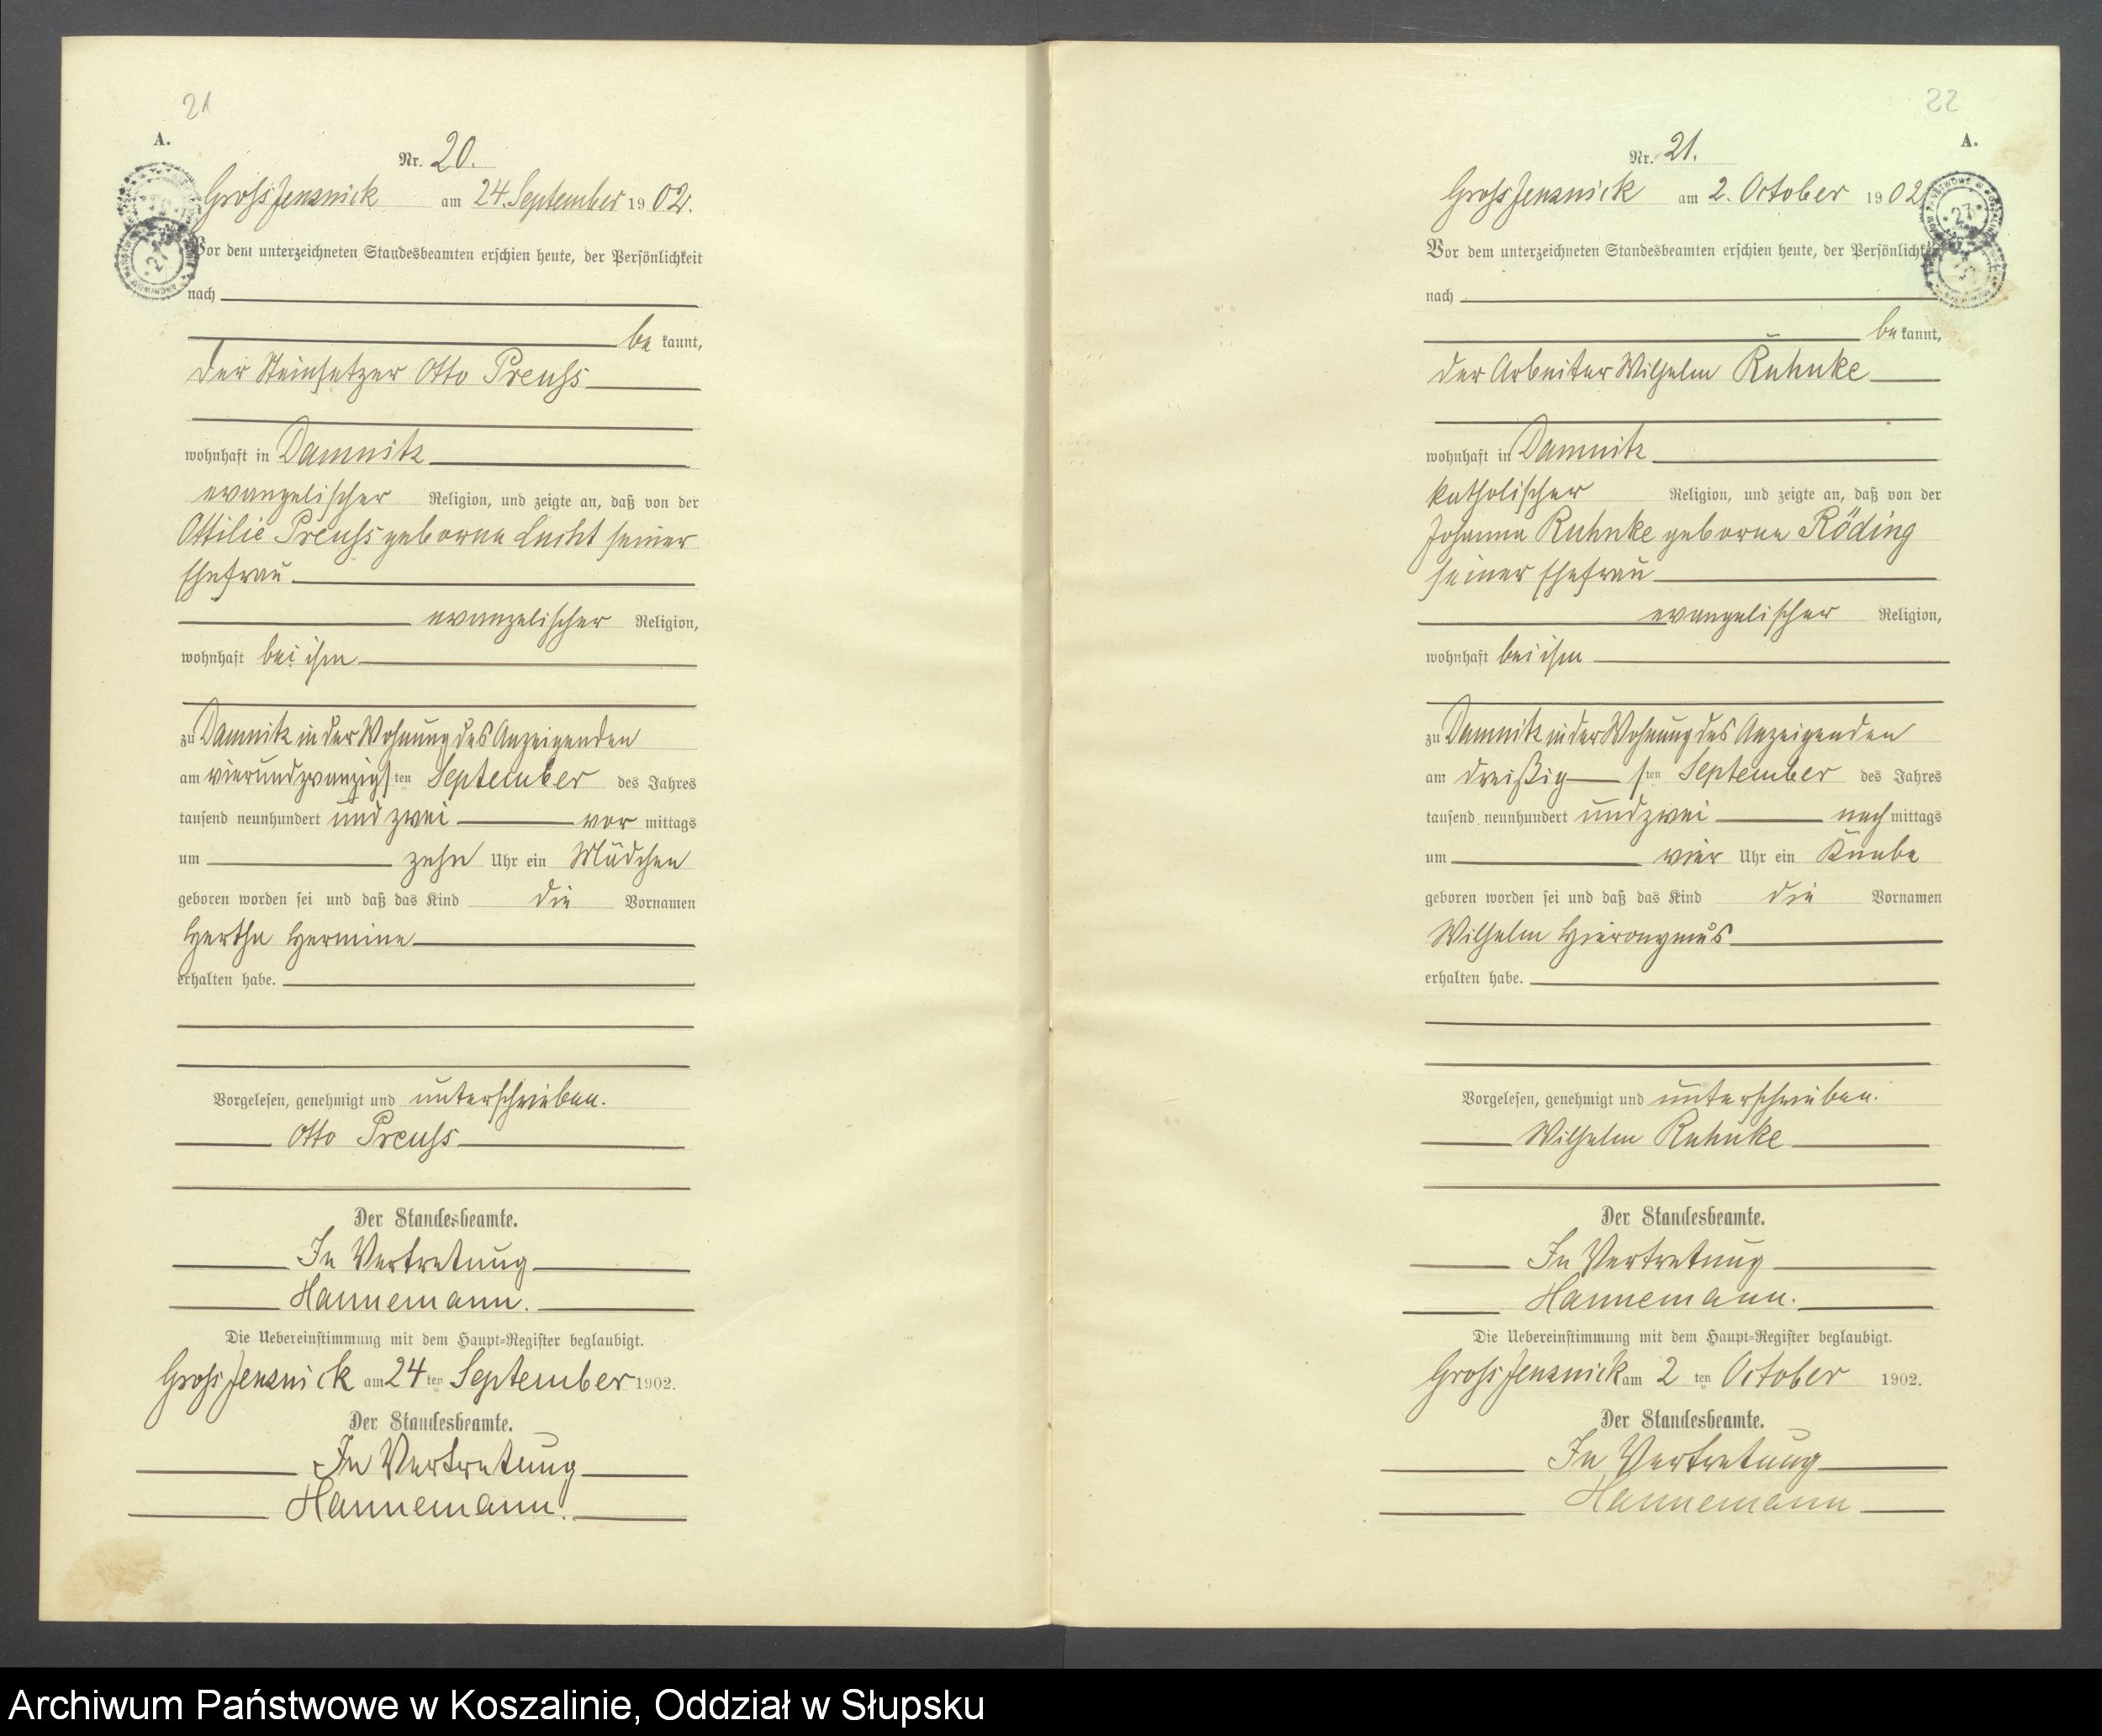 21
A.
Nr. 20.
Gross Jenznick am 24. September 1902.
Vor dem unterzeichneten Standesbeamten erschien heute, der Persönlichkeit
nach
be kannt,
der Steinsetzer Otto Preuss
wohnhaft in Damnitz
evangelischer Religion, und zeigte an, daß von der
Ottilie Preuss geborne Lucht seiner
Ehefrau
evangelischer Religion,
wohnhaft bei ihm
zu Damnitz in der Wohnung des Anzeigenden
am vierundzwanzigsten September des Jahres
tausend neunhundert und zwei vor mittags
um zehn Uhr ein Mädchen
geboren worden sei und daß das Kind die Vornamen
Hertha Hermine
erhalten habe.
Vorgelesen, genehmigt und unterschrieben.
Otto Preuss
Der Standesbeamte.
In Vertretung
Hannemann.
Die Uebereinstimmung mit dem Haupt-Register beglaubigt.
Gross Jenznick am 24 ten September 1902.
Der Standesbeamte.
In Vertretung
Hannemann.
22
A.
Nr. 21.
Gross Jenznick am 2. October 1902
27
Vor dem unterzeichneten Standesbeamten erschien heute, der Persönlichkeit
nach
be kannt,
der Arbeiter Wilhelm Ruhnke
wohnhaft in Damnitz
katholischer Religion, und zeigte an, daß von der
Johanna Ruhnke geborne Röding
seiner Ehefrau
evangelischer Religion,
wohnhaft bei ihm
zu Damnitz in der Wohnung des Anzeigenden
am dreißig sten September des Jahres
tausend neunhundert und zwei nach mittags
um vier Uhr ein Knabe
geboren worden sei und daß das Kind die Vornamen
Wilhelm Hieronymus
erhalten habe.
Vorgelesen, genehmigt und unterschrieben.
Wilhelm Ruhnke
Der Standesbeamte.
In Vertretung
Hannemann.
Die Uebereinstimmung mit dem Haupt-Register beglaubigt.
Gross Jenznick am 2 ten October 1902.
Der Standesbeamte.
In Vertretung
Hannemann
Archiwum Państwowe w Koszalinie, Oddział w Słupsku